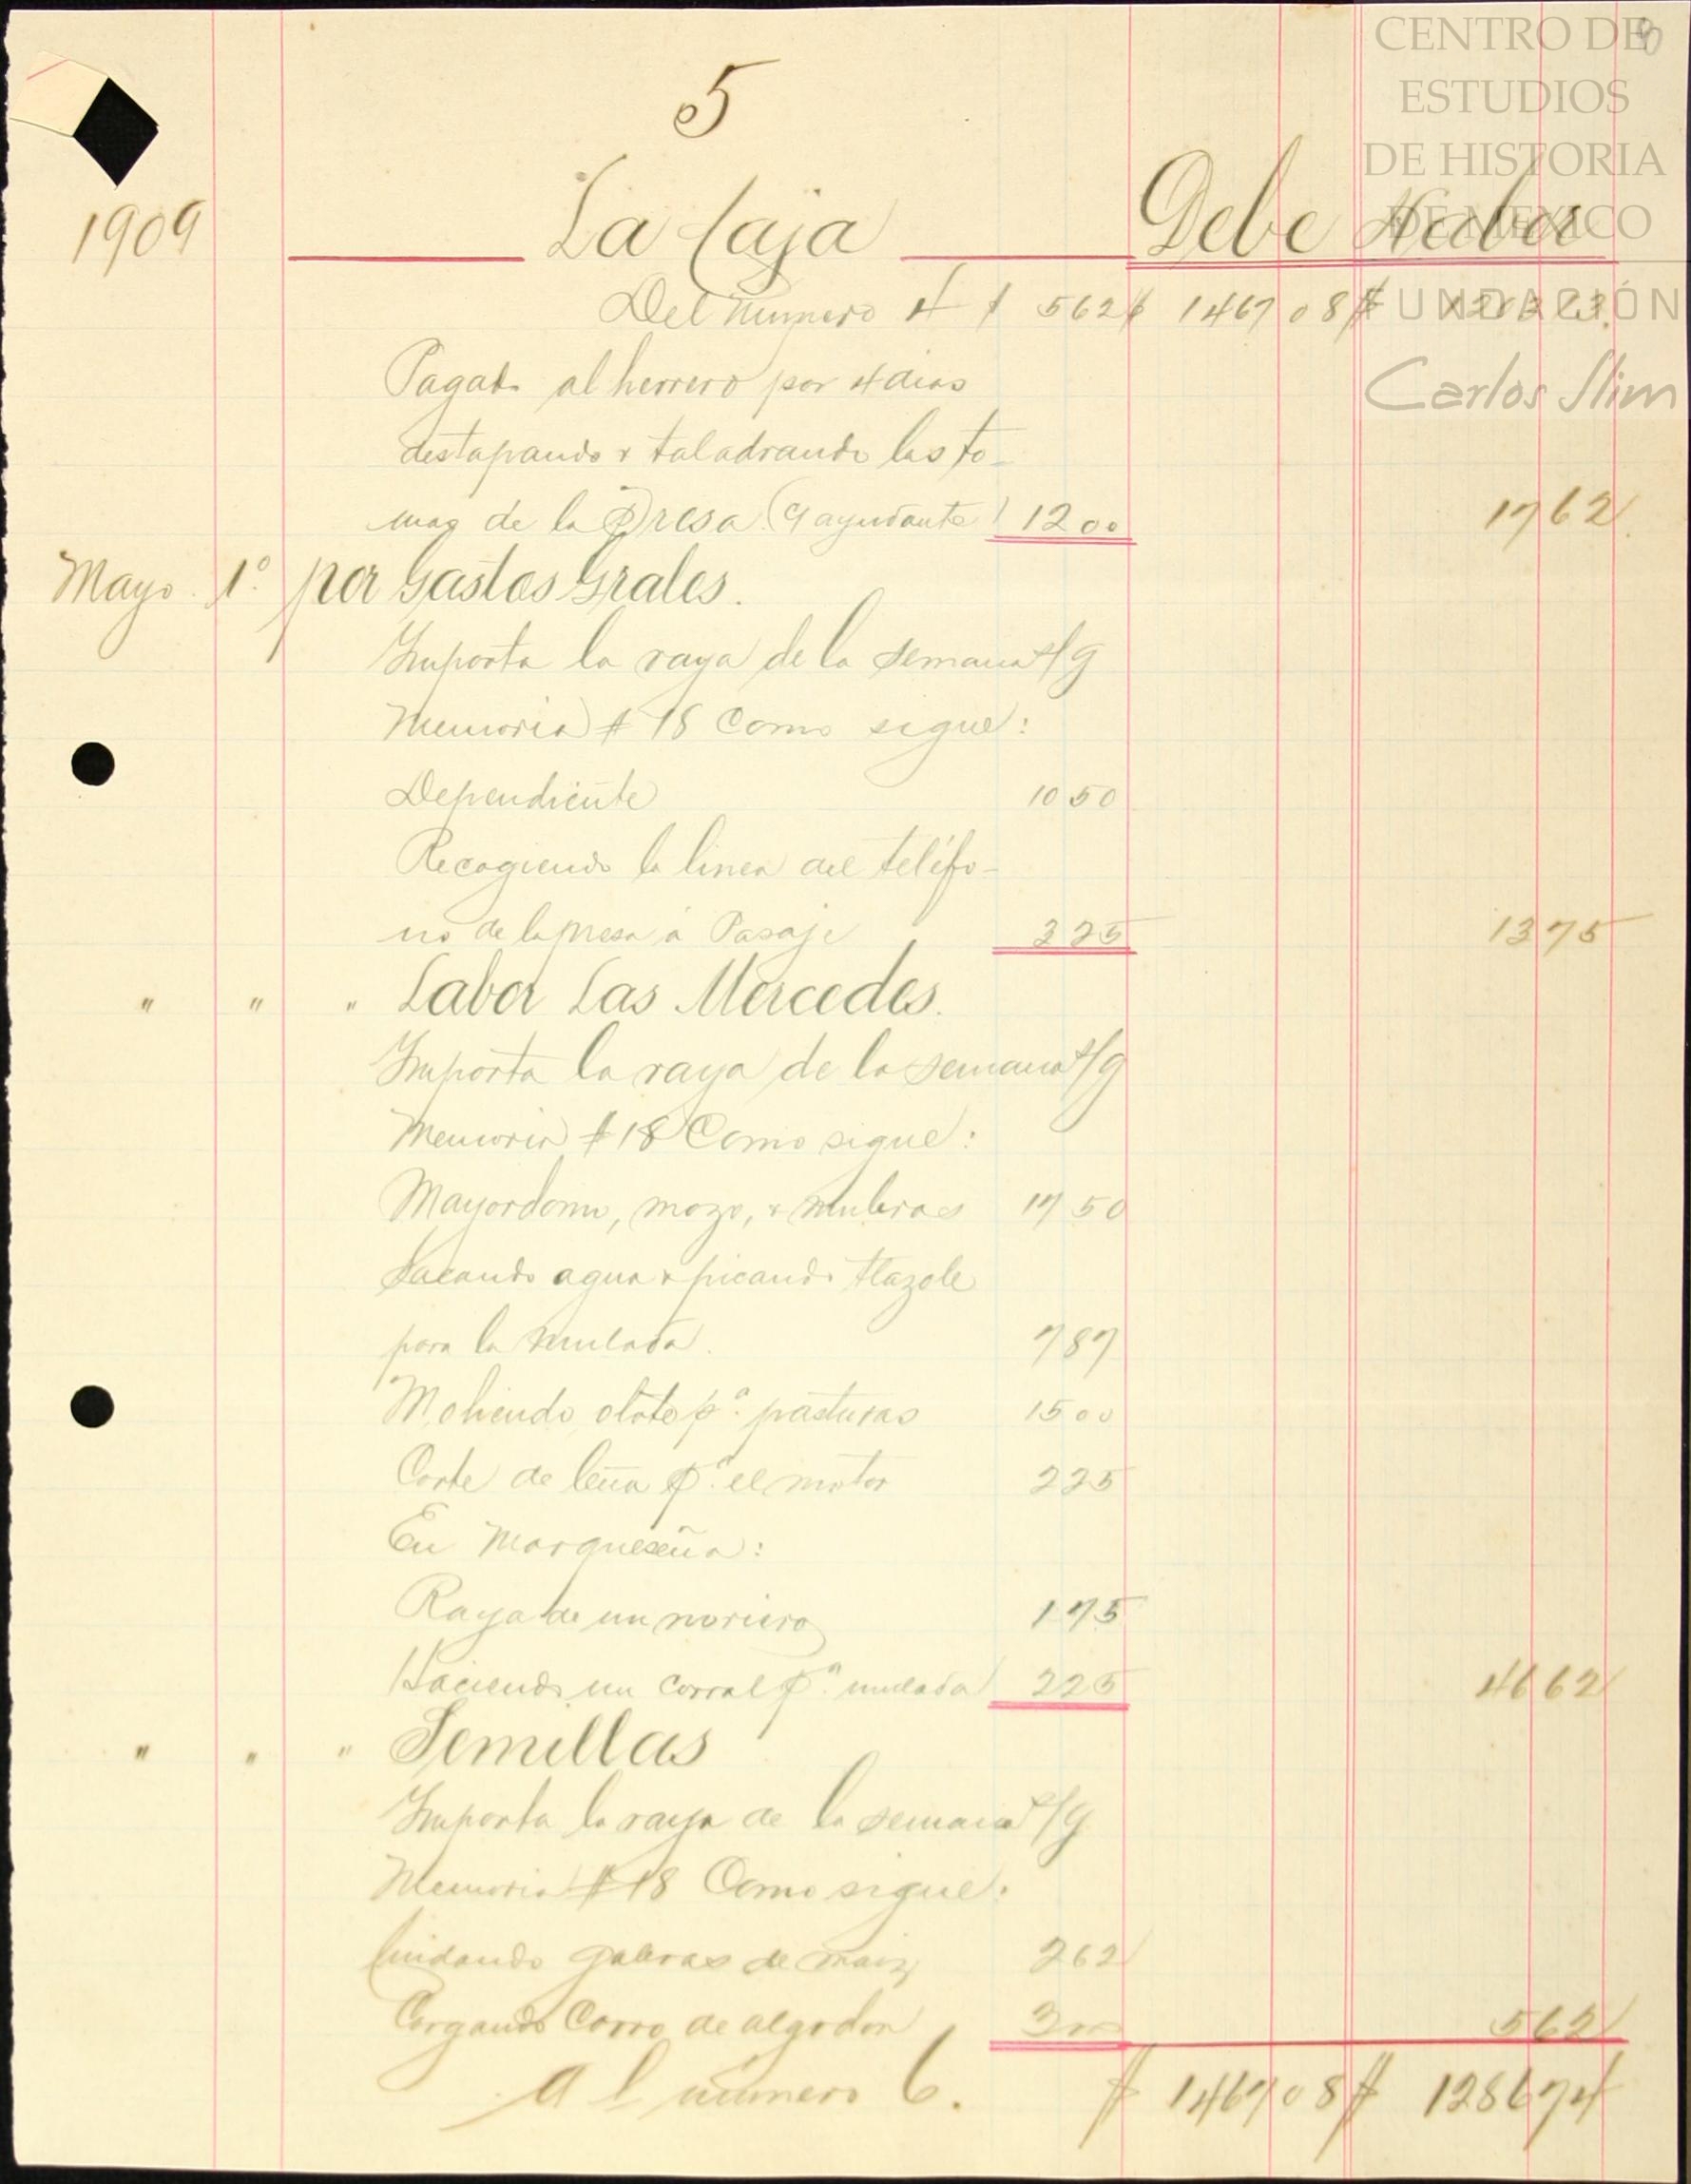 5
1909 La Caja Debe Haber
Del Numero 4 $ 562 $ 1467 08 $ 1203 13
Pagado al herrero por 4 dias
destapando & taladrando las to-
mas de la Presa. (y ayudante) 12 00 17 62
Mayo 1º por Gastos Grales.
Importa la raya de la semana s/g
Memoria # 18 Como sigue:
Dependiente 10 50
Recogiendo la linea del teléfo-
no de la presa á Pasaje 3 25 13 75
" " " Labor Las Mercedes.
Importa la raya de la semana s/g
Memoria # 18 Como sigue:
Mayordomo, mozo, & muleras 17 50
Sacando agua & picando tlazole
para la mulada. 7 87
Moliendo olote pª. pasturas 15 00
Corte de leña pª. el motor 2 25
En Marqueseña:
Raya de un noriero 1 75
Haciendo un corral pª. mulada 2 25 46 62
" " " Semillas
Importa la raya de la semana s/g
Memoria # 18 Como sigue:
Cuidando galeras de maiz 2 62
Cargando Carro de algodon 3 00 5 62
Al número 6. $ 1467 08 $ 1286 74
CENTRO DE
ESTUDIOS
DE HISTORIA
DE MÉXICO
FUNDACIÓN
Carlos Slim